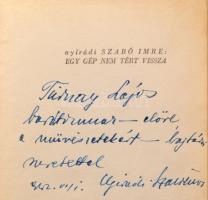 nyirádi SZABÓ IMRE:
EGY GÉP NEM TÉRT VISSZA
Tárnay Lajos
barátomnak — előre
a művészetekért —
szeretettel
Nyirádi Szabó Imre